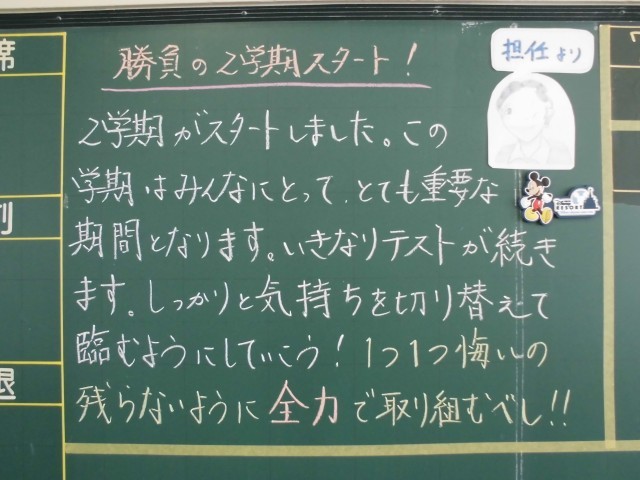 席
勝負の2学期スタート!
担任より
2学期がスタートしました。この
学期はみんなにとって、とても重要な
期間となります。いきなりテストが続き
ます。しっかりと気持ちを切り替えて
臨むようにしていこう!1つ1つ悔いの
残らないように全力で取り組むべし!!
RESORT
退